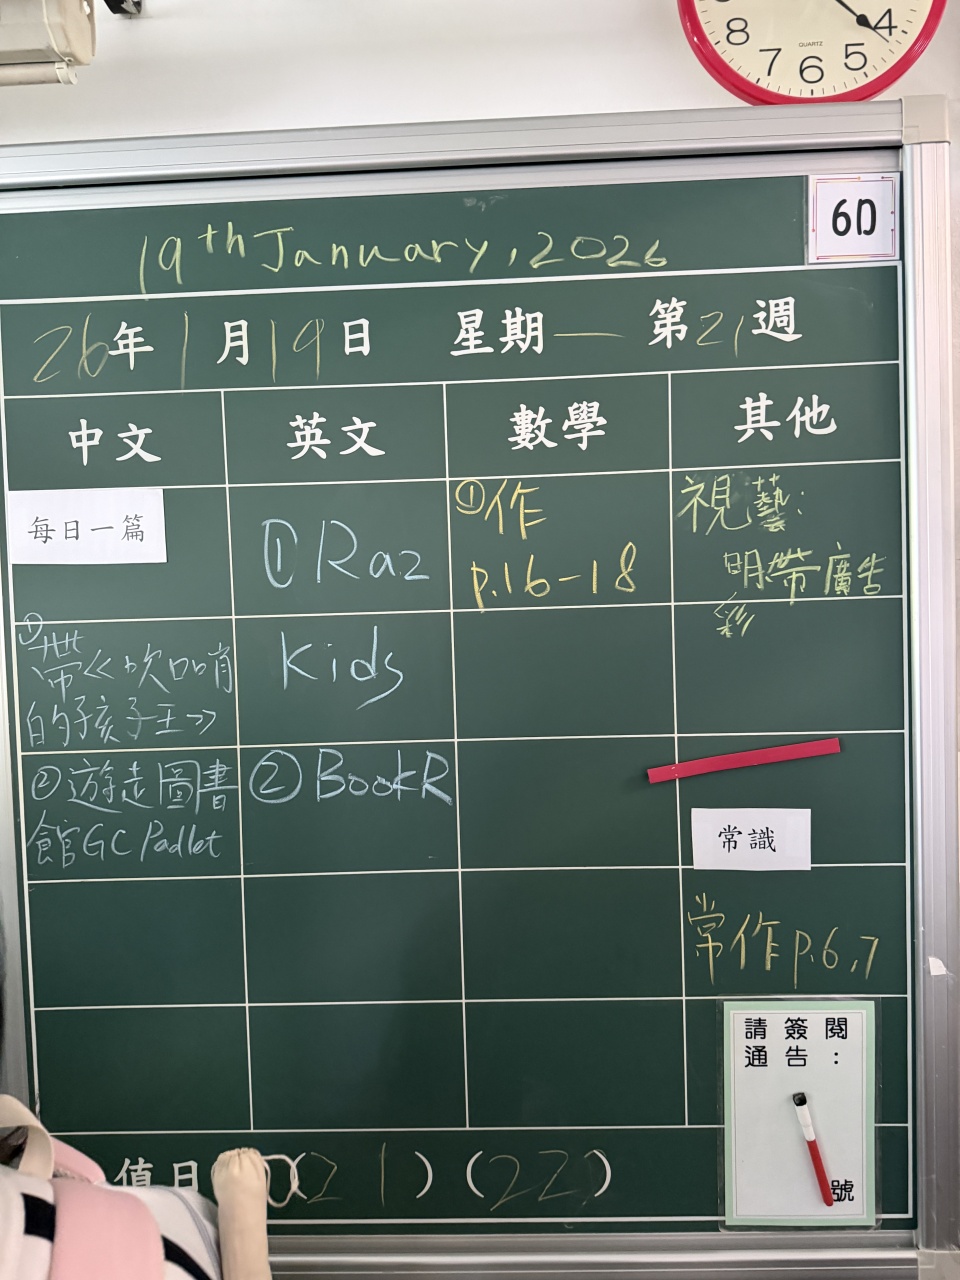 8 7 6 5 4
QUARTZ
6D
19th January, 2026
26年1月19日 星期一 第21週
中文 英文 數學 其他
每日一篇
①帶《吹口哨
的孩子王》
②遊走圖書
館GC Padlet
①Raz
Kids
②BookR
①作
p.16-18
視藝:
明帶廣告
彩
常識
常作p.6,7
請簽閱
通告:
號
值日 (21) (22)